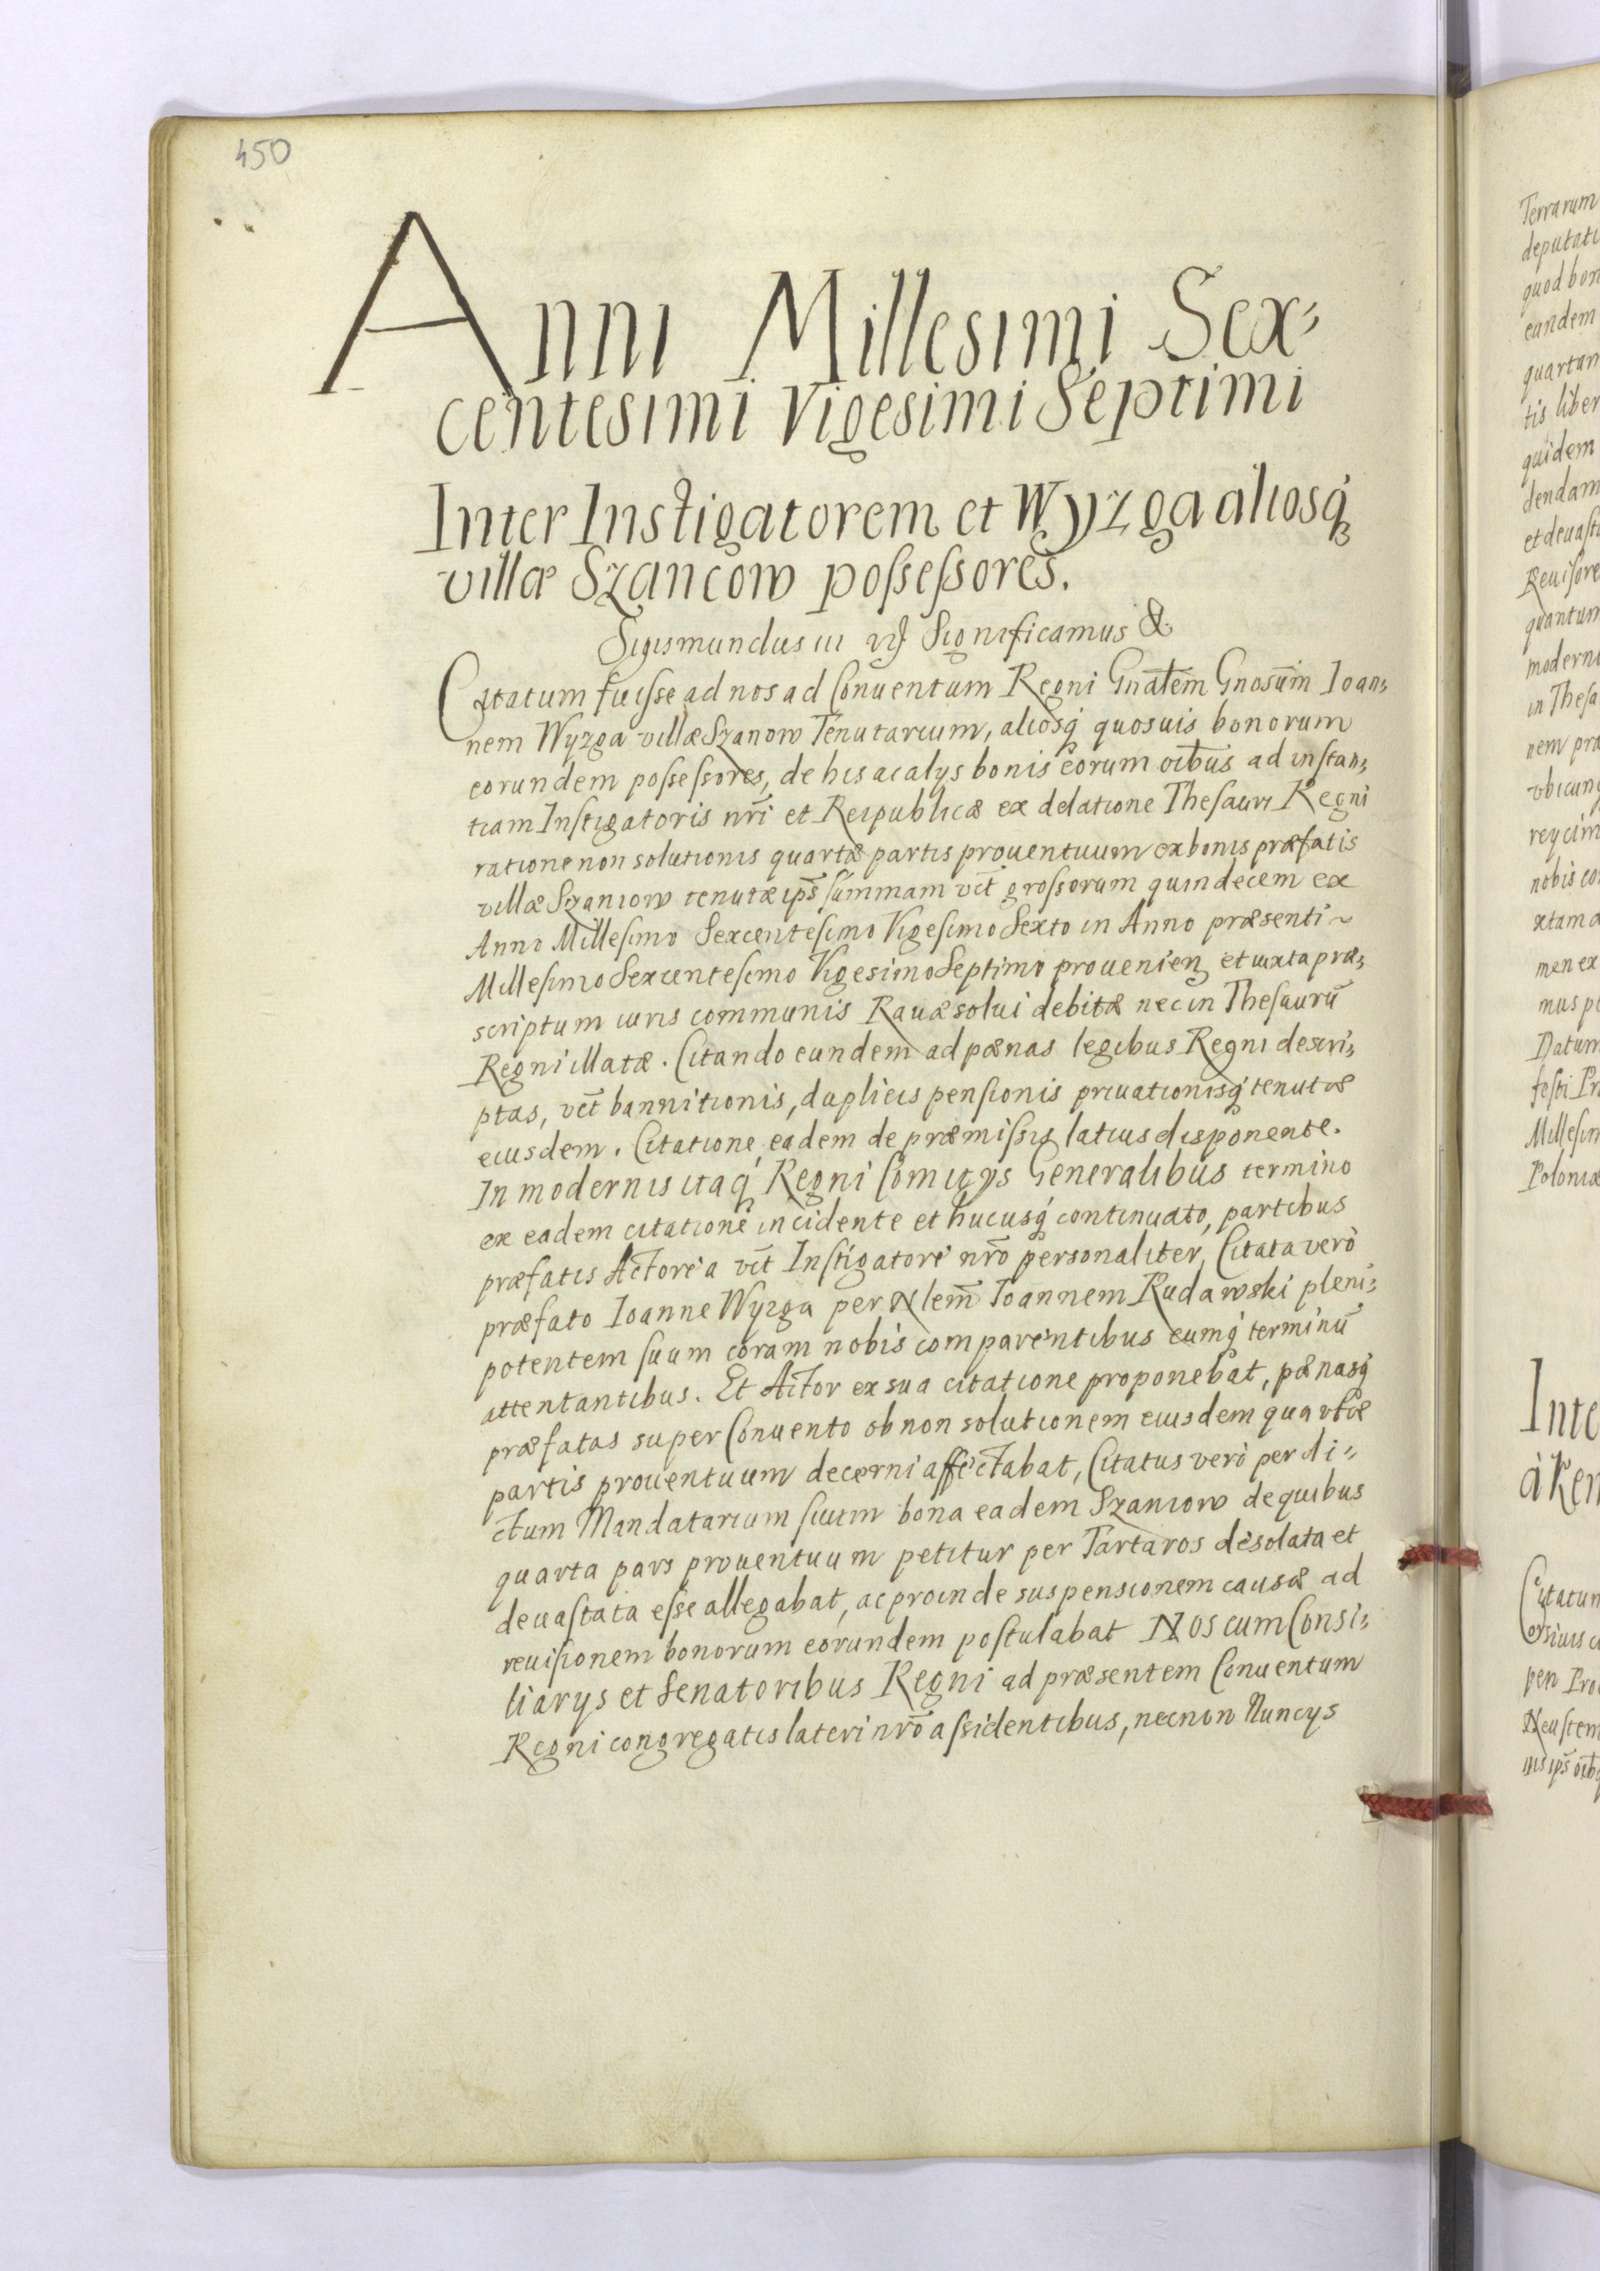 450
Anni Millesimi Sex-
centesimi Vigesimi Septimi
Inter Instigatorem et Wyzga aliosq́
villæ Szancow possessores.
Sigismundus III Significamus &
Citatum fuisse ad nos ad Conuentum Regni Gnãtem Gnosum̃ Ioan-
nem Wyzga villæ Szanow Tenutarium, aliosq́ quosuis bonorum
eorundem possessores, de his ac alys bonis eorum oibus ad instan-
tiam Instigatoris nrĩ et Reipublicæ ex delatione Thesauri Regni
ratione non solutionis quartæ partis prouentuum ex bonis præfatis
villæ Szaniow tenutæ ips̃ summam vct̃ grossorum quindecem ex
Anno Millesimo Sexcentesimo Vigesimo Sexto in Anno præsenti ~
Millesimo Sexcentesimo Vigesimo Septimo prouenien et iuxta præ-
scriptum iuris communis Rauæ solui debitæ nec in Thesaurũ
Regni illatæ. Citando eundem ad pœnas legibus Regni descri-
ptas, vct̃ bannitionis, duplicis pensionis priuationisq́ tenutæ
eiusdem. Citatione eadem de præmissis latius disponente.
In modernis itaq́ Regni Comitys Generalibus termino
ex eadem citatione incidente et hucusq́ continuato, partibus
præfatis Actorea vct̃ Instigatore nrõ personaliter, Citata verò
præfato Ioanne Wyzga per Nlem̃ Ioannem Rudawski pleni-
potentem suum coram nobis comparentibus eumq́ terminũ
attentantibus. Et Actor ex sua citatione proponebat, pœnasq́
præfatas super Conuento ob non solutionem eiusdem quartæ
partis prouentuum decerni affectabat, Citatus verò per di-
ctum Mandatarium suum bona eadem Szaniow de quibus
quarta pars prouentuum petitur per Tartaros desolata et
deuastata esse allegabat, ac proinde suspensionem causæ ad
reuisionem bonorum eorundem postulabat Nos cum Consi-
liarys et Senatoribus Regni ad præsentem Conuentum
Regni congregatis lateri nrõ assidentibus, necnon Nuncys
Terrarum
deputati
quod bon
eandem
quartam
tis liber
quidem
dendam
et deuast
Reuisore
quantum
moderno
in Thesa
nem præ
vbicunq
reycim
nobis co
xtam a
men ex
mus p
Datum
festi Pr
Millesim
Poloniæ
Inte
à Ren
Citatum
pen Pro